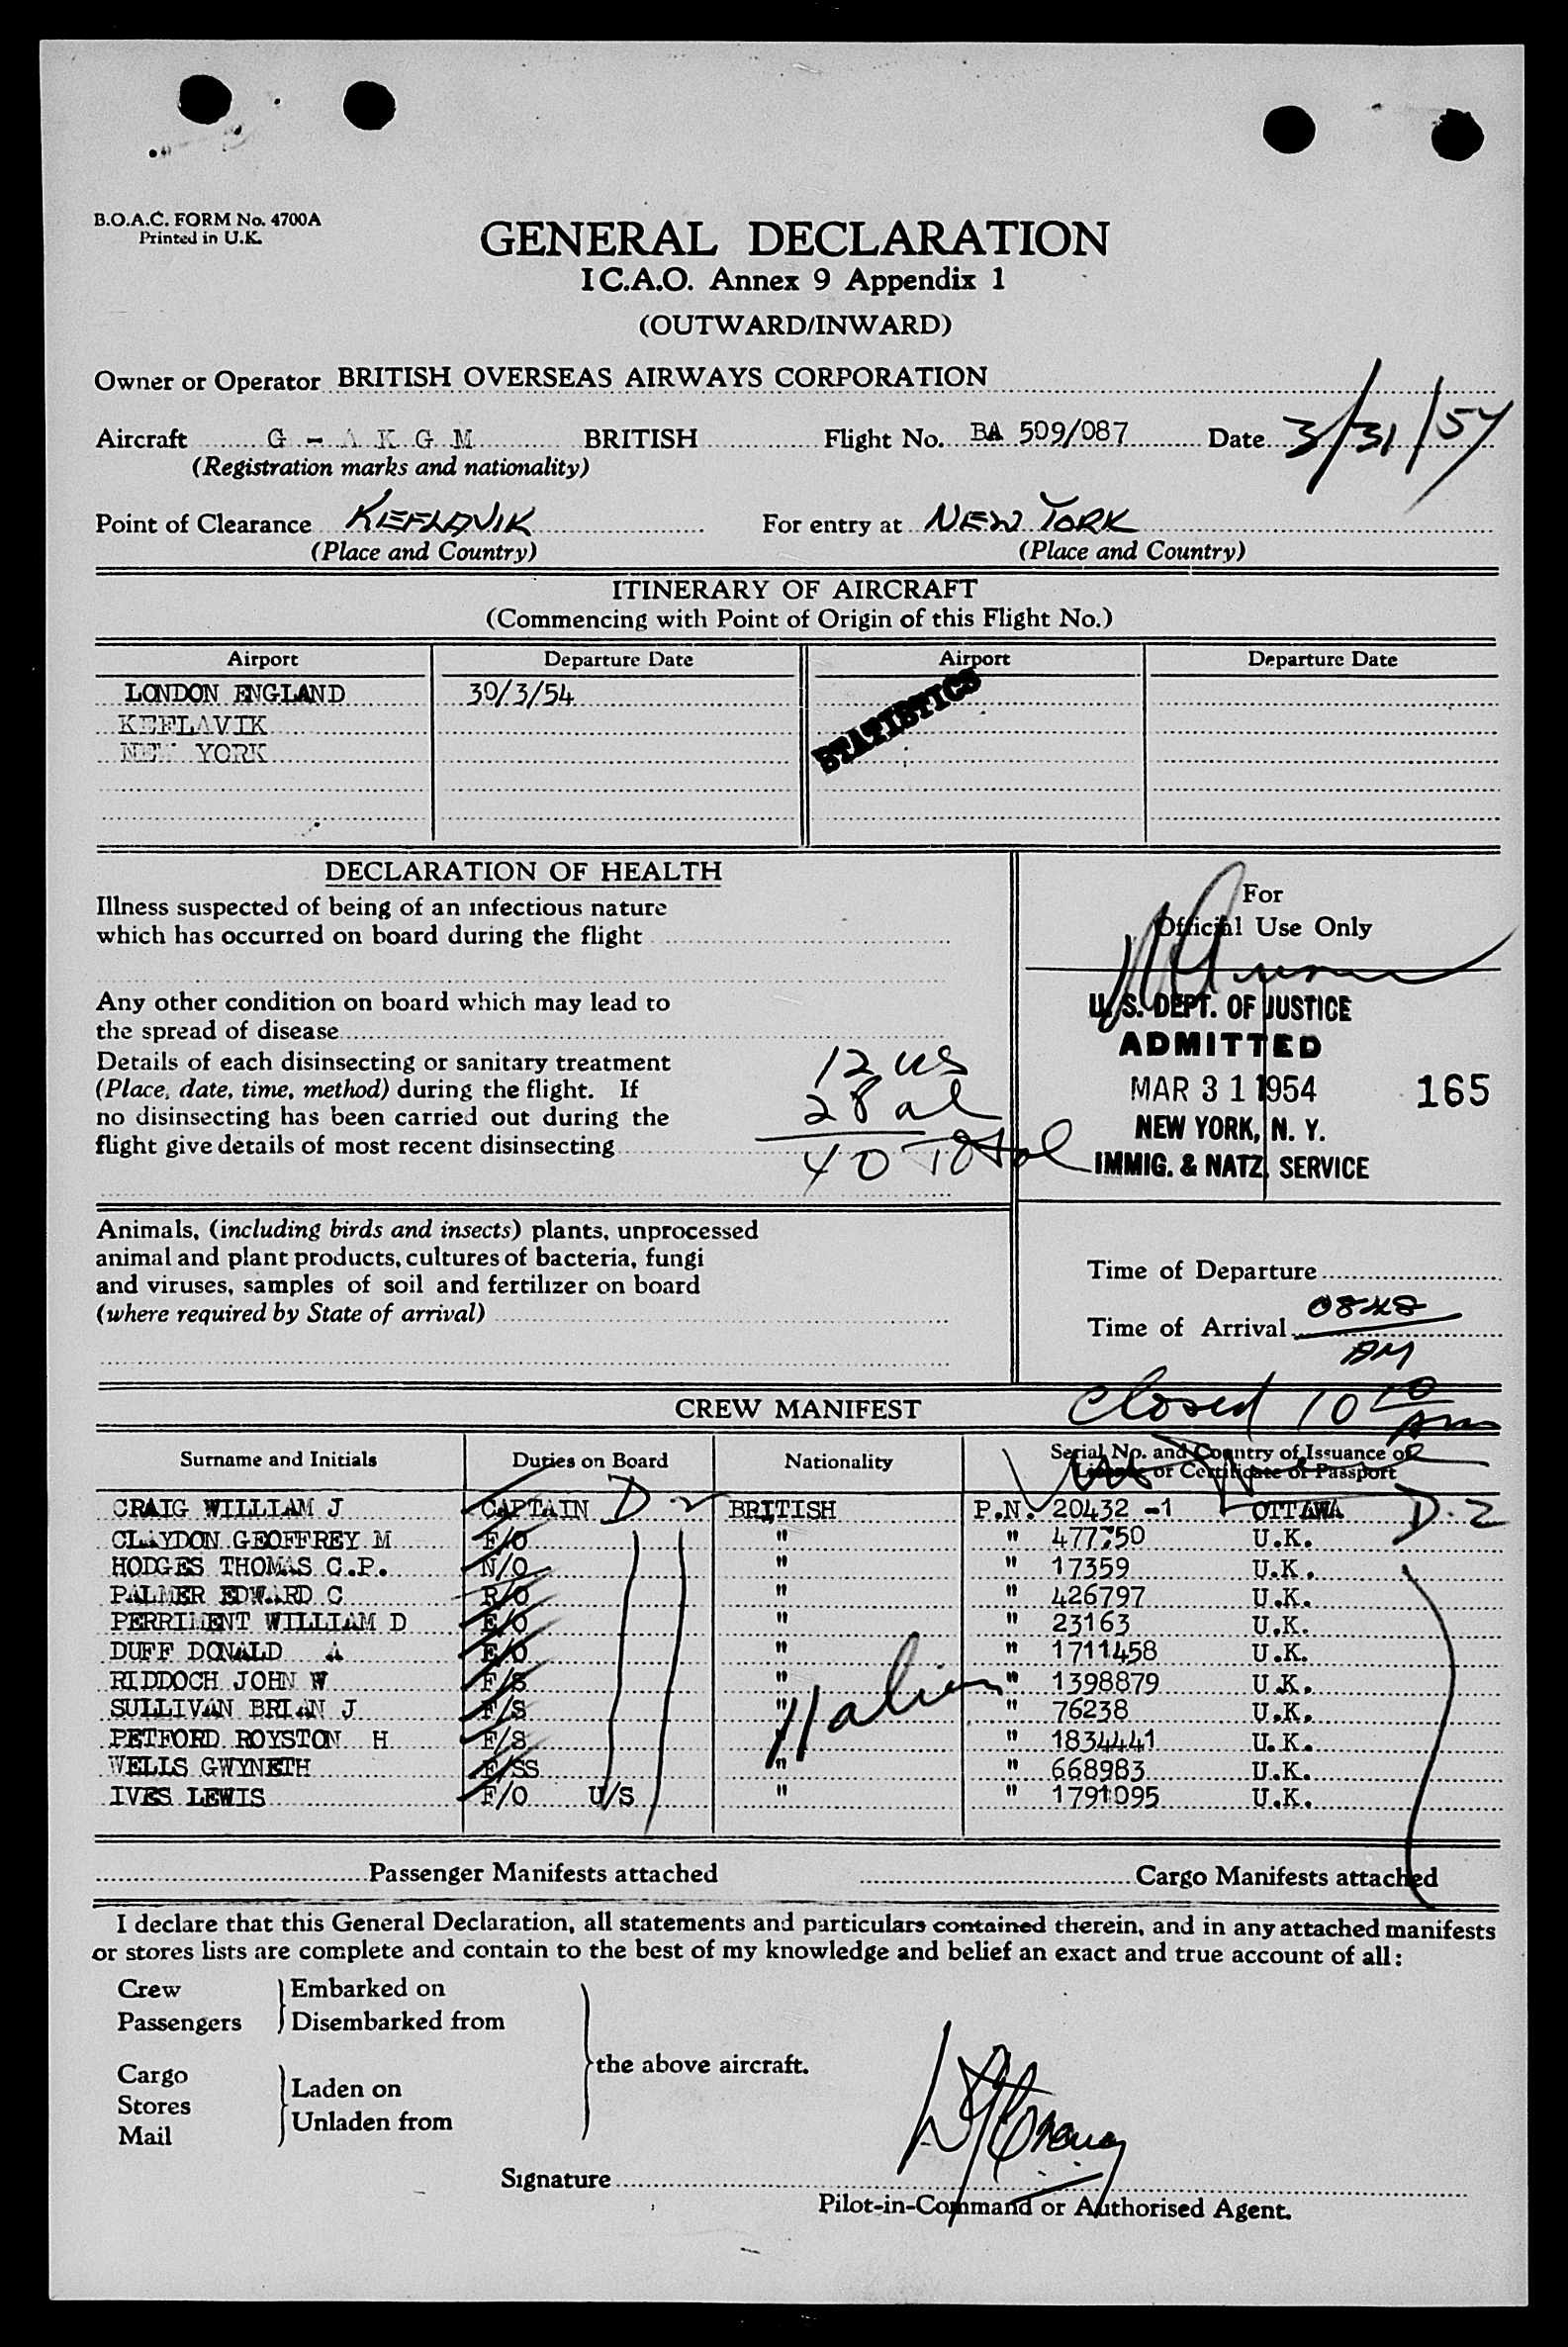 B.O.A.C. FORM No. 4700A
Printed in U.K.
GENERAL DECLARATION
I C.A.O. Annex 9 Appendix 1
(OUTWARD/INWARD)
Owner or Operator BRITISH OVERSEAS AIRWAYS CORPORATION
Aircraft G - A K G M BRITISH Flight No. BA 509/087 Date 3/31/54
(Registration marks and nationality)
Point of Clearance KEFLAVIK For entry at NEW YORK
(Place and Country) (Place and Country)
ITINERARY OF AIRCRAFT
(Commencing with Point of Origin of this Flight No.)
Airport Departure Date Airport Departure Date
LONDON ENGLAND 30/3/54
KEFLAVIK
NEW YORK
STATISTICS
DECLARATION OF HEALTH
Illness suspected of being of an infectious nature
which has occurred on board during the flight
Any other condition on board which may lead to
the spread of disease
Details of each disinsecting or sanitary treatment
(Place, date, time, method) during the flight. If
no disinsecting has been carried out during the
flight give details of most recent disinsecting
12 us
28 al
40 Total
For
Official Use Only
U.S. DEPT. OF JUSTICE
ADMITTED
MAR 31 1954 165
NEW YORK, N. Y.
IMMIG. & NATZ. SERVICE
Animals, (including birds and insects) plants, unprocessed
animal and plant products, cultures of bacteria, fungi
and viruses, samples of soil and fertilizer on board
(where required by State of arrival)
Time of Departure
Time of Arrival 0848
AM
Closed 10 10 Am
CREW MANIFEST
Surname and Initials Duties on Board Nationality Serial No. and Country of Issuance of
License or Certificate or Passport
CRAIG WILLIAM J CAPTAIN D-2 BRITISH P.N. 20432 -1 OTTAWA D-2
CLAYDON GEOFFREY M F/O " " 477750 U.K.
HODGES THOMAS C.P. N/O " " 17359 U.K.
PALMER EDWARD C R/O " " 426797 U.K.
PERRIMENT WILLIAM D E/O " " 23163 U.K.
DUFF DONALD A E/O " " 1711458 U.K.
RIDDOCH JOHN W F/S " " 1398879 U.K.
SULLIVAN BRIAN J F/S " " 76238 U.K.
PETFORD ROYSTON H F/S " " 1834441 U.K.
WELLS GWYNETH F/SS " " 668983 U.K.
IVES LEWIS F/O U/S " " 1791095 U.K.
11 alien
Passenger Manifests attached Cargo Manifests attached
I declare that this General Declaration, all statements and particulars contained therein, and in any attached manifests
or stores lists are complete and contain to the best of my knowledge and belief an exact and true account of all:
Crew Embarked on
Passengers Disembarked from
the above aircraft.
Cargo Laden on
Stores
Mail Unladen from
Signature
Pilot-in-Command or Authorised Agent.